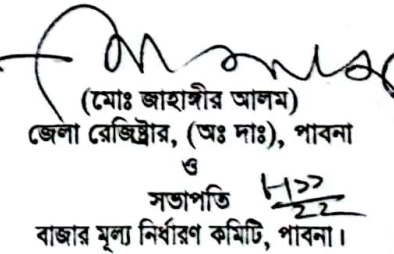 (মোঃ জাহাঙ্গীর আলম)
জেলা রেজিষ্ট্রার, (অঃ দাঃ), পাবনা
ও
সভাপতি
বাজার মূল্য নির্ধারণ কমিটি, পাবনা।